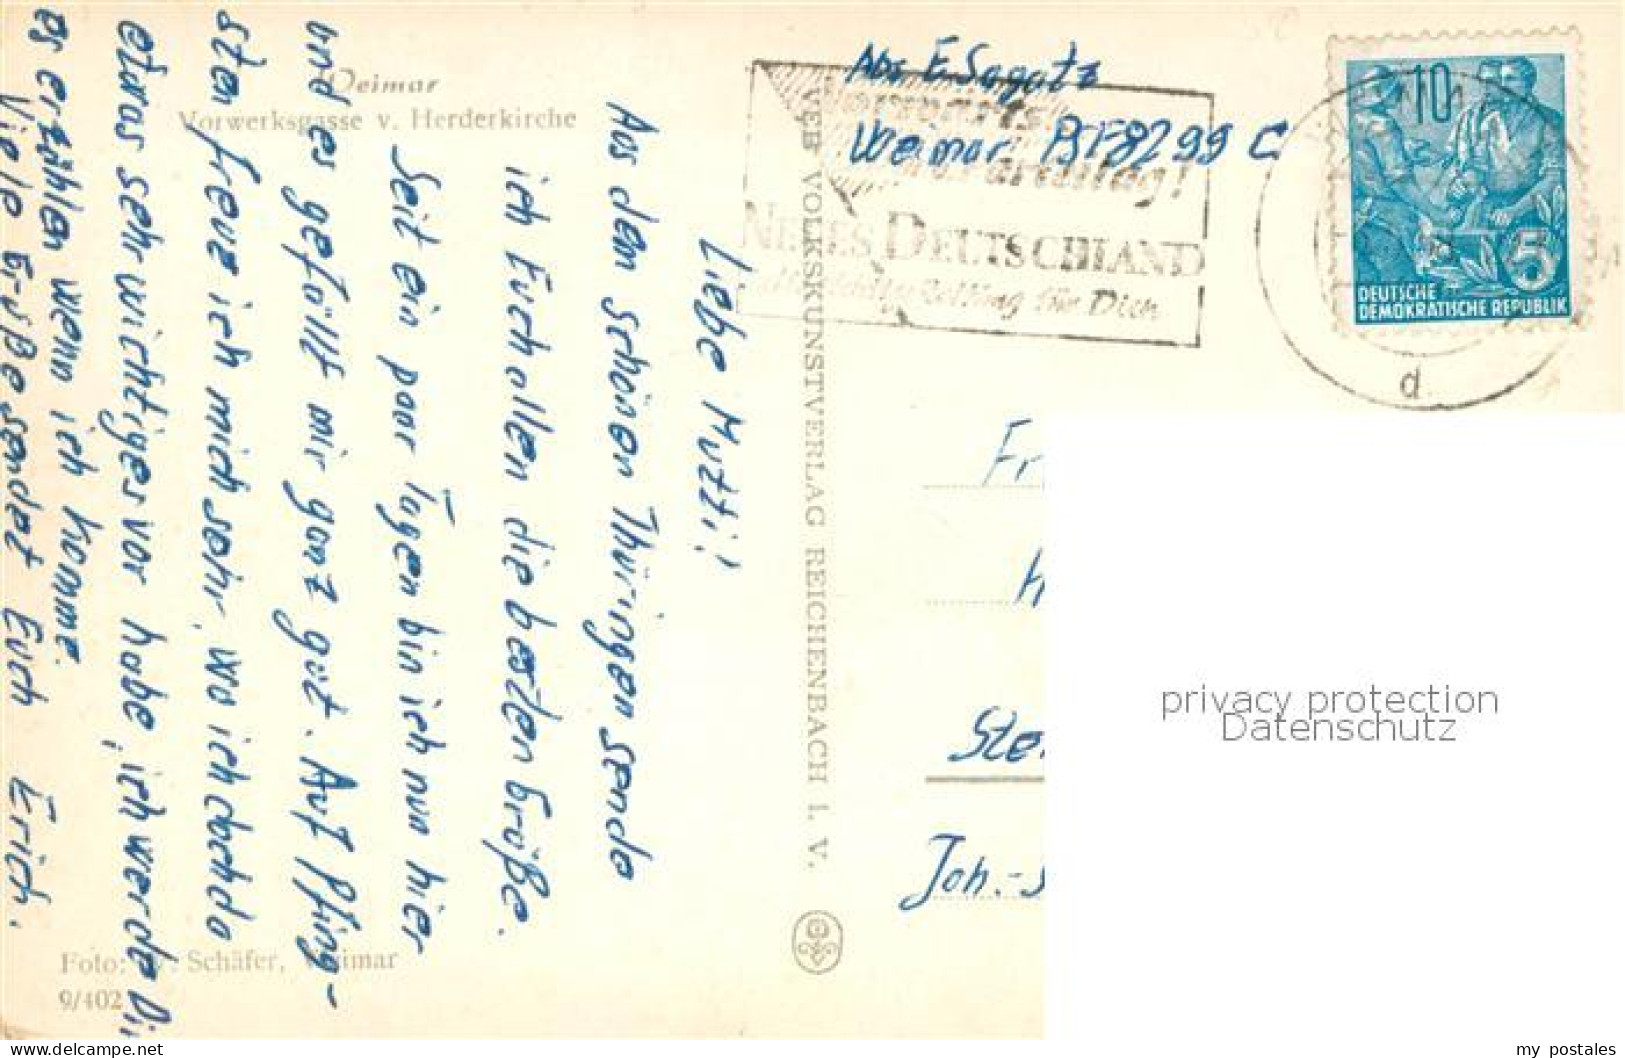 Weimar
Vorwerksgasse v. Herderkirche
Liebe Mutti!
Aus dem schönen Thüringen sende
ich Euch allen die besten Grüße.
Seit ein paar Tagen bin ich nun hier
und es gefällt mir ganz gut. Auf Pfing-
sten freue ich mich sehr, wo ich doch da
etwas sehr wichtiges vor habe, ich werde Dir
es erzählen wenn ich komme.
Viele Grüße sendet Euch Erich.
Foto: W. Schäfer, Weimar
9/402
VEB VOLKSKUNSTVERLAG REICHENBACH I. V.
Abs E. Sagatz
Weimar PSF 8299 C
NEUES DEUTSCHLAND
für Dich
10
5
DEUTSCHE
DEMOKRATISCHE REPUBLIK
d
Fr
H
Ste
Joh.-S
privacy protection
Datenschutz
www.delcampe.net
my_postales